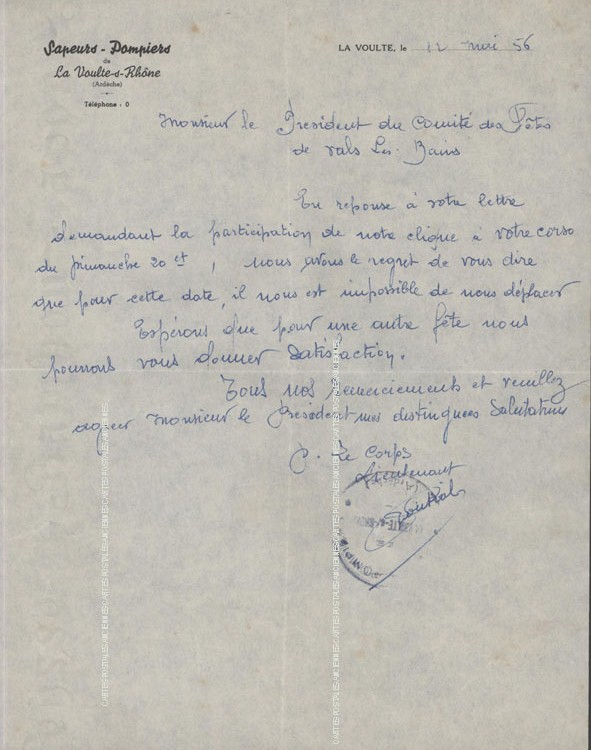 Sapeurs - Pompiers
de
La Voulte-s-Rhône
(Ardèche)
Téléphone : 0
LA VOULTE, le 12 mai 56
Monsieur le Président du Comité des Fêtes
de Vals Les-Bains
En reponse à votre lettre
demandant la participation de notre clique à votre corso
du Dimanche 20 ct, nous avons le regret de vous dire
que pour cette date, il nous est impossible de nous déplacer
Espérons que pour une autre fête nous
pourrons vous donner satisfaction.
Tous nos remerciements et veuillez
agreer Monsieur le Président mes distinguées Salutations
P. Le Corps
Lieutenant
CARTES POSTALES ANCIENNES CARTES POSTALES ANCIENNES CARTES POSTALES
CARTES POSTALES ANCIENNES CARTES POSTALES ANCIENNES CARTES POSTALES